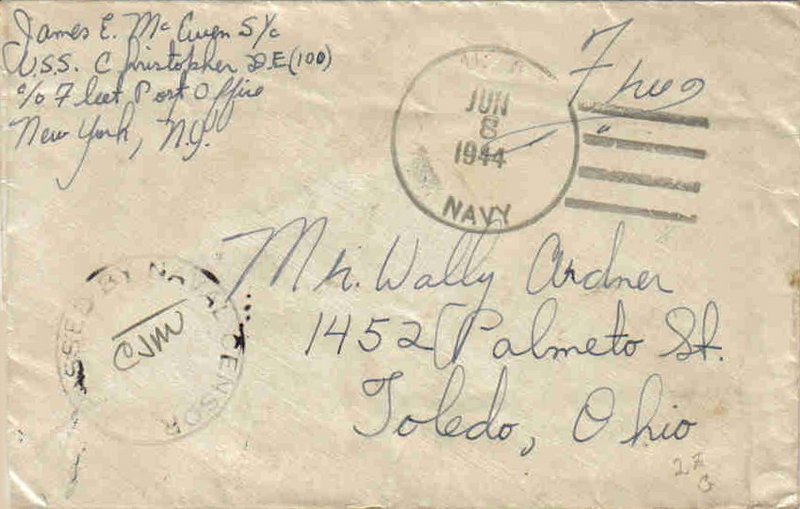 James E. McEwen S1/c
U.S.S. Christopher D.E(100)
c/o Fleet Post Office
New York, N.Y.
Free
JUN
8
1944
NAVY
Mr. Wally Ardner
1452 Palmeto St.
Toledo, Ohio
PASSED BY NAVAL CENSOR
CJM